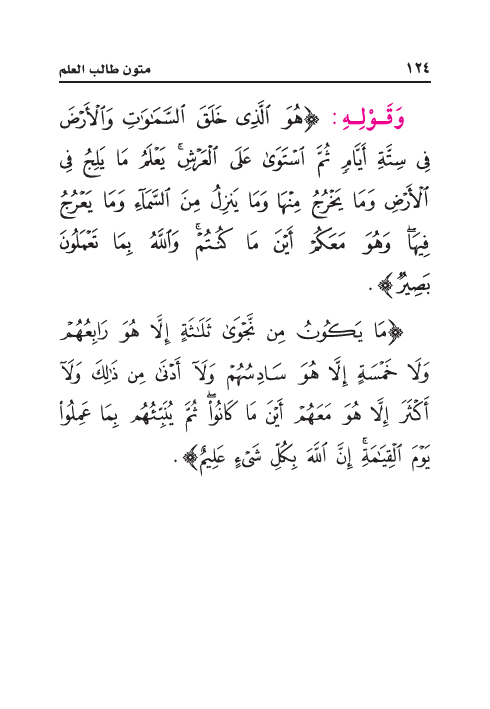 ١٢٤ متون طالب العلم
وَقَوْلِهِ: ﴿هُوَ ٱلَّذِى خَلَقَ ٱلسَّمَٰوَٰتِ وَٱلْأَرْضَ
فِى سِتَّةِ أَيَّامٍ ثُمَّ ٱسْتَوَىٰ عَلَى ٱلْعَرْشِ ۚ يَعْلَمُ مَا يَلِجُ فِى
ٱلْأَرْضِ وَمَا يَخْرُجُ مِنْهَا وَمَا يَنزِلُ مِنَ ٱلسَّمَآءِ وَمَا يَعْرُجُ
فِيهَا ۖ وَهُوَ مَعَكُمْ أَيْنَ مَا كُنتُمْ ۚ وَٱللَّهُ بِمَا تَعْمَلُونَ
بَصِيرٌ﴾.
﴿مَا يَكُونُ مِن نَّجْوَىٰ ثَلَٰثَةٍ إِلَّا هُوَ رَابِعُهُمْ
وَلَا خَمْسَةٍ إِلَّا هُوَ سَادِسُهُمْ وَلَآ أَدْنَىٰ مِن ذَٰلِكَ وَلَآ
أَكْثَرَ إِلَّا هُوَ مَعَهُمْ أَيْنَ مَا كَانُوا۟ ۖ ثُمَّ يُنَبِّئُهُم بِمَا عَمِلُوا۟
يَوْمَ ٱلْقِيَٰمَةِ ۚ إِنَّ ٱللَّهَ بِكُلِّ شَىْءٍ عَلِيمٌ﴾.